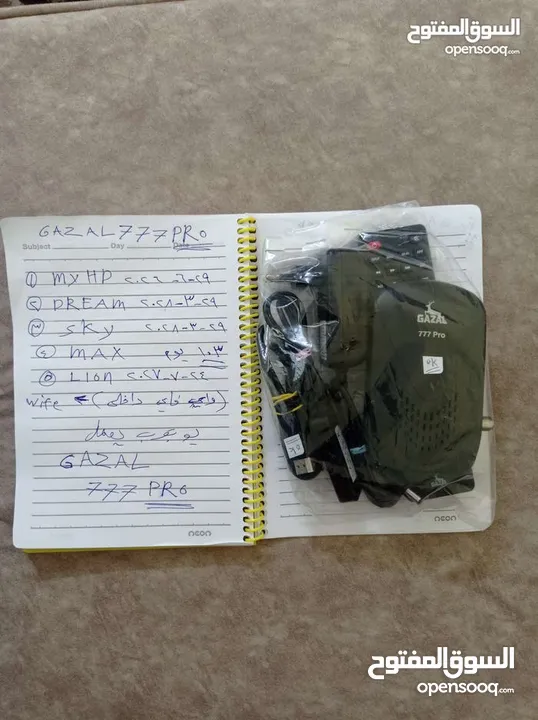 السوق المفتوح
opensooq.com
GAZAL 777 PRO
Subject Day Date
① MYHD ٢٠٢٦-٦-٢٩
② DREAM ٢٠٢٨-٣-٢٩
③ SKY ٢٠٢٨-٣-٢٩
④ MAX ١٠٣ يوم
⑤ LION ٢٠٢٧-٧-٢٤
wife (واي فاي داخلي)
يوتيوب يعمل
GAZAL
777 PRO
neon
GAZAL
777 Pro
OK
OK
neon
السوق المفتوح
opensooq.com